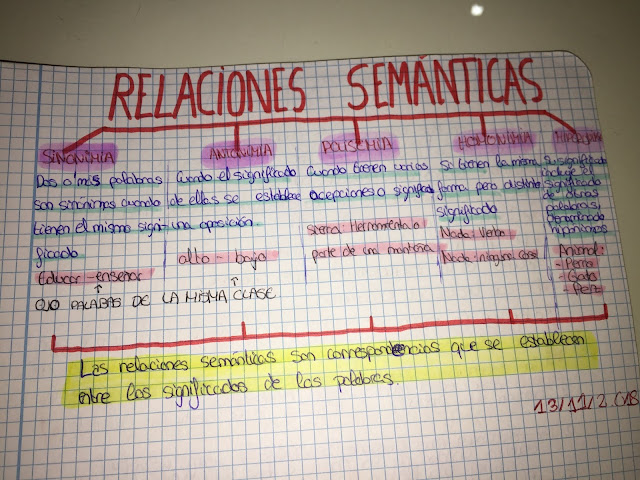 RELACIONES SEMÁNTICAS
SINONIMIA
Dos o más palabras
son sinónimas cuando
tienen el mismo signi-
ficado
Educar-enseñar
PALABAS DE LA MISMA CLASE
ANTONIMIA
Cuando el significado
de ellas se establece
una oposición.
alto - bajo
POLISEMIA
Cuando tienen varias
acepciones o significa
sierra: Herramienta o
parte de una montaña
HOMONIMIA
Si tienen la misma
forma pero distinto
significado
Nada: Verbo
Nada: ninguna cosa
Su significado
incluye el
significado
de otras
palabras,
denominado
hiponimos
Animal:
- Perro
- Gato
- Pez
Las relaciones semánticas son correspondencias que se establecen
entre los significados de las palabras.
13/11/2.018